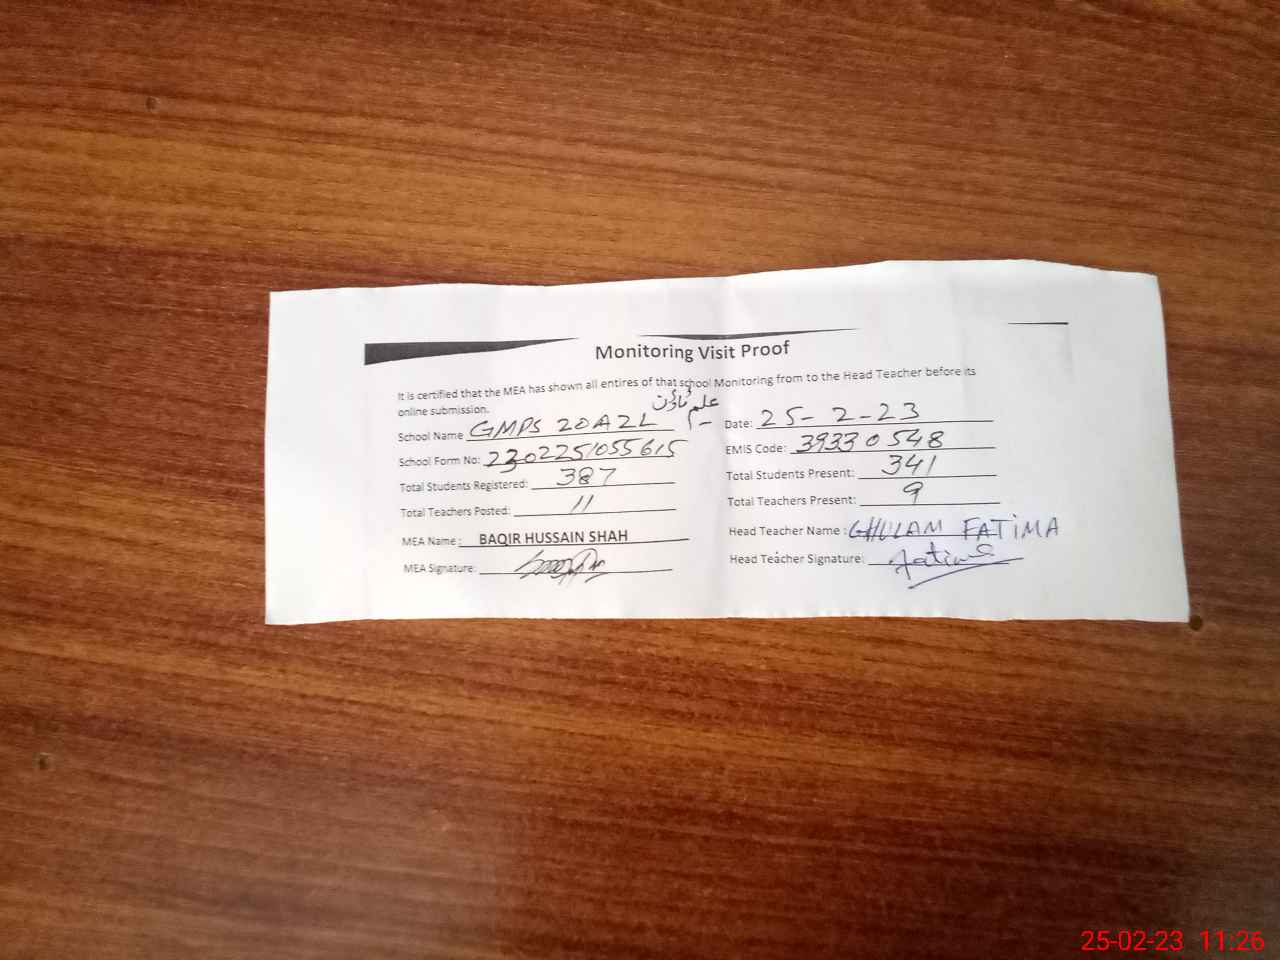 Monitoring Visit Proof
It is certified that the MEA has shown all entires of that school Monitoring from to the Head Teacher before its
online submission.
علم ٹاؤن
School Name GMPS 20A2L Date: 25-2-23
School Form No: 2302251055615 EMIS Code: 39330548
Total Students Registered: 387 Total Students Present: 341
Total Teachers Posted: 11 Total Teachers Present: 9
MEA Name: BAQIR HUSSAIN SHAH Head Teacher Name: GHULAM FATIMA
MEA Signature: Head Teacher Signature: Fatima
25-02-23 11:26